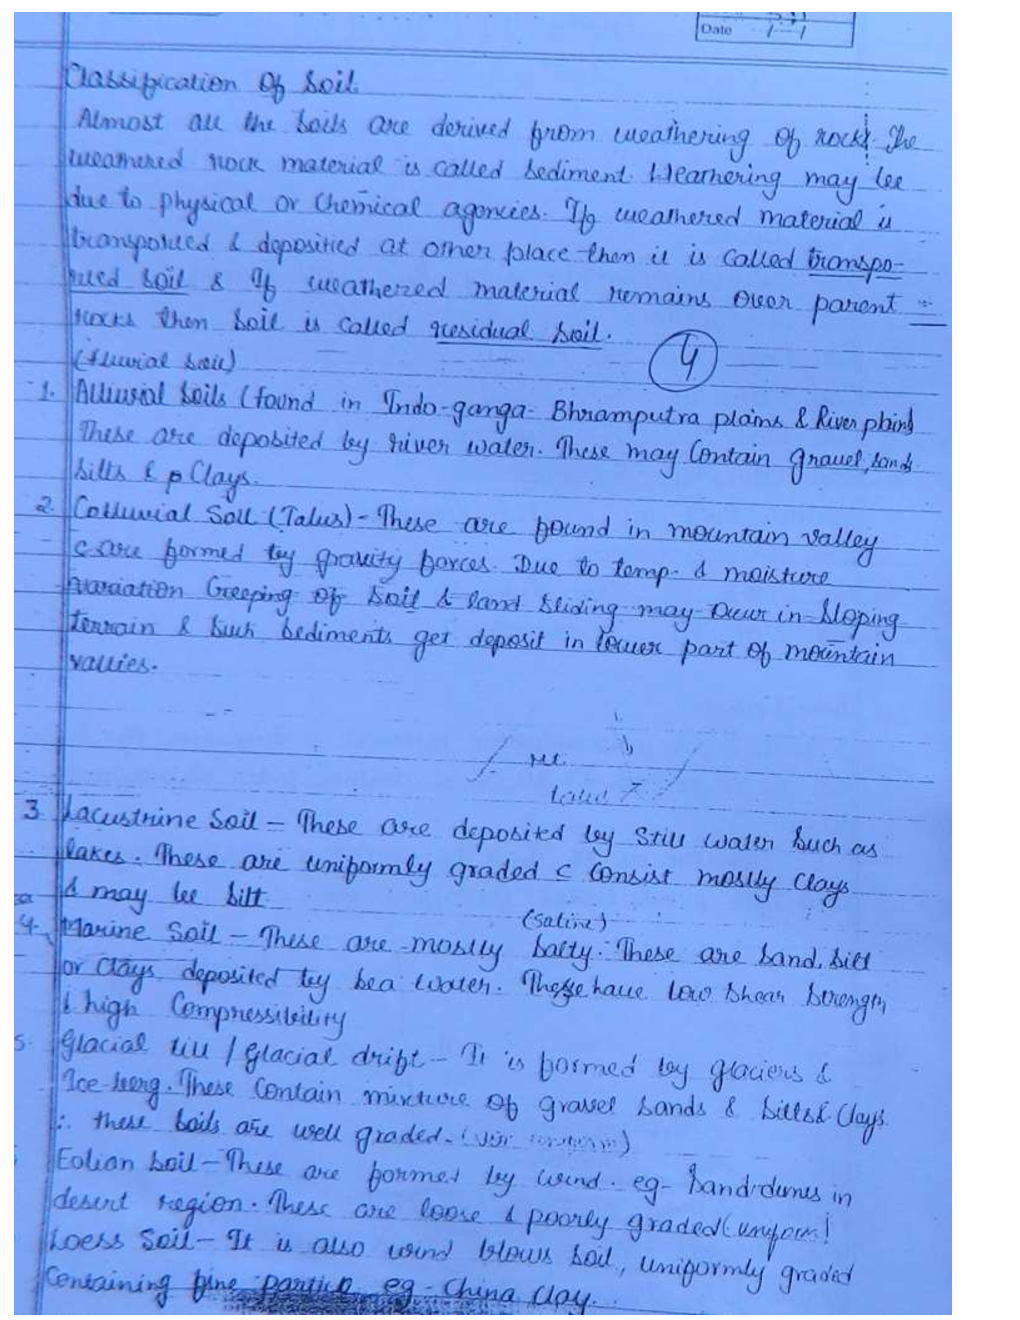 Date
Classification of Soil
Almost all the soils are derived from weathering of rock. The
weathered rock material is called sediment. Weathering may be
due to physical or Chemical agencies. If weathered material is
transported & deposited at other place then it is called transpo-
rted soil & If weathered material remains over parent
rocks then soil is called residual soil.
(fluvial soil)
4
1. Alluvial soils (found in Indo-ganga-Bhramputra plains & River plains)
These are deposited by river water. These may contain gravel, sands
silts & Clays.
2. Colluvial Soil (Talus) - These are found in mountain valley
& are formed by gravity forces. Due to temp. & moisture
variation Creeping of soil & land sliding may occur in sloping
terrain & such sediments get deposit in lower part of mountain
vallies.
3. Lacustrine Soil - These are deposited by still water such as
lakes. These are uniformly graded & consist mostly clays
& may be silt
(saline)
4. Marine Soil - These are mostly salty. These are sand, silt
or clays deposited by sea water. These have low shear strength
& high Compressibility
5. Glacial till / Glacial drift - It is formed by glaciers &
Ice-berg. These contain mixture of gravel sands & silts & Clays.
∴ these soils are well graded.
Eolian soil - These are formed by wind. eg - Sand-dunes in
desert region. These are loose & poorly graded (uniform)
Loess Soil - It is also wind blows soil, uniformly graded
Containing fine particle eg - China Clay.